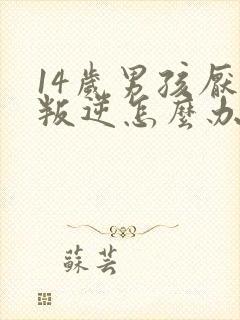 14歲男孩厭
叛逆怎麼办
蘇芸